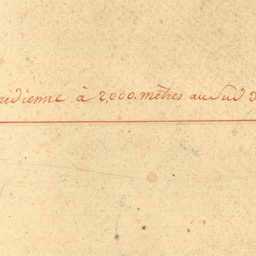 redienne à 2,000. mètres au Sud